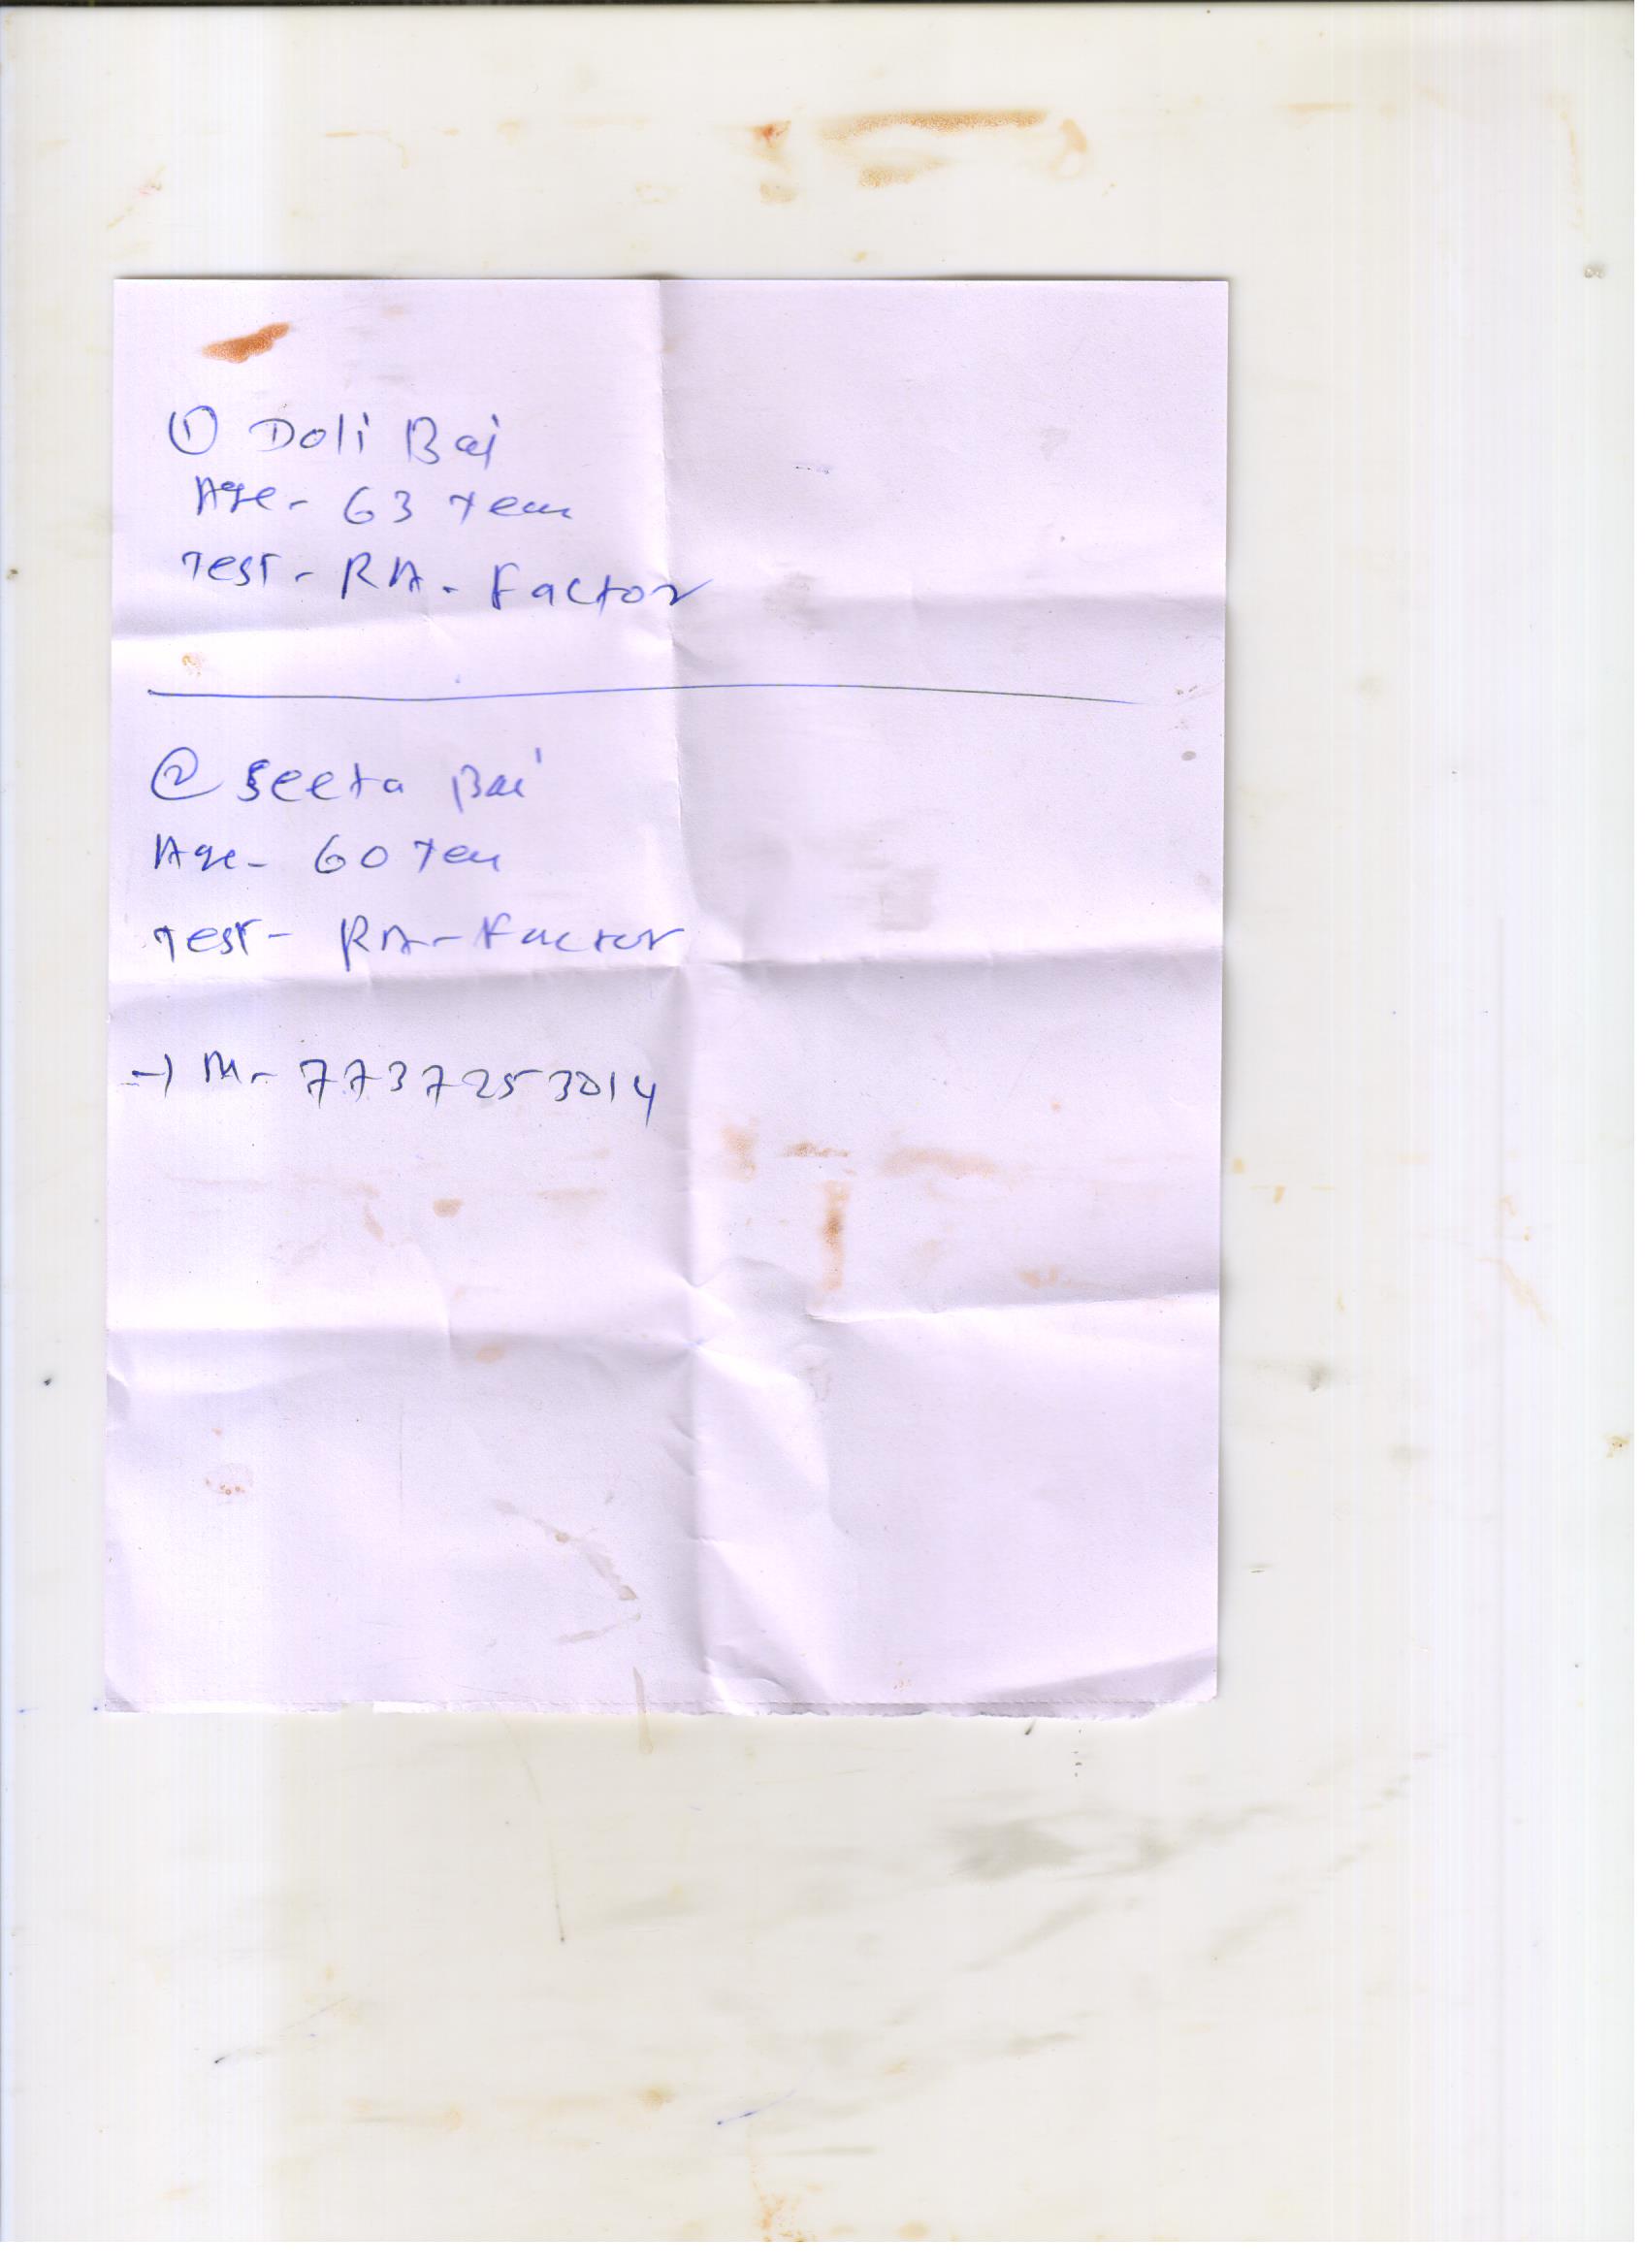 ① Doli Bai
Age - 63 Year
Test - RA - Factor
② Seeta Bai
Age - 60 Year
Test - RA - Factor
→ M - 7737253014